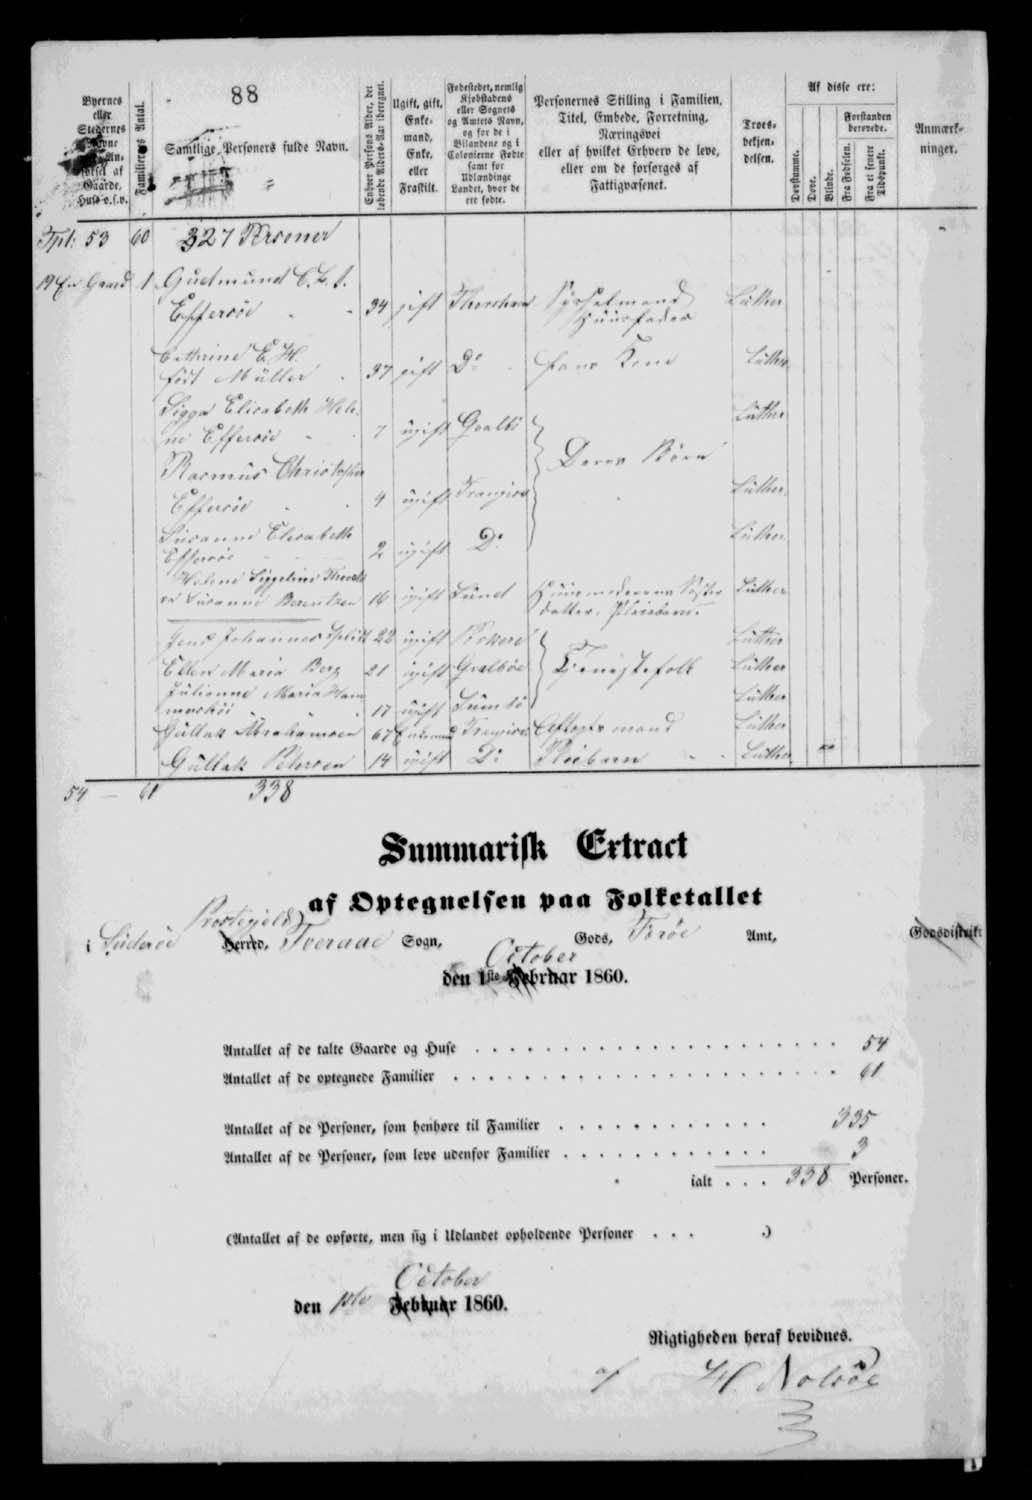 88
Byernes
eller
Stedernes
Familiernes Antal.
Samtlige Personers fulde Navn.
Enhver Persons Alder, det løbende Alders-Aar iberegnet.
Ugift, gift,
Enke-
mand,
Enke,
eller
Fraskilt.
Fødestedet, nemlig
Kjøbstadens
eller Sognets
og Amtets Navn,
og for de i
Bilandene og i
Colonierne Fødte
samt for
Udlændinge
Landet, hvor de
ere fødte.
Personernes Stilling i Familien,
Titel, Embede, Forretning,
Næringsvei
eller af hvilket Erhverv de leve,
eller om de forsørges af
Fattigvæsenet.
Troes-
bekjen-
delsen.
Af disse ere:
Døvstumme.
Døve.
Blinde.
Forstanden
berøvede.
Fra Fødselen.
Fra et senere Tidspunkt.
Anmærk-
ninger.
Tpt: 53 60 327 Personer
19 En Gaard 1 Gudmund C. L. J.
Effersöe 34 gift Thorshavn Sysselmand Luther
Huusfader
Cathrine E. H.
födt Müller 37 gift Do hans Kone Luther
Sigga Elisabeth Hele-
ne Effersöe 7 ugift Qvalbö Luther
Deres Börn
Rasmus Christopher
Effersöe 4 ugift Trangisv Luther
Susanne Elisabeth
Effersöe 2 ugift Do Luther
Helene Sippeline Thoval
Susanne Berentzen 16 ugift Sund Huusmoderens Söster
datter, Pleiebarn. Luther
Jens Johannes Splidt 22 ugift Porkere Luther
Ellen Maria Berg 21 ugift Qvalböe Tjenestefolk Luther
Julianne Maria Ham
mershöi 17 ugift Sumbö Luther
Gullak Abrahamsen 67 Enkemand Trangisv Aftægtsmand Luther
Gullak Petersen 14 ugift Do Pleiebarn Luther
54 — 61 338
Summarisk Extract
af Optegnelsen paa Folketallet
Præstegjeld
i Süderöe Herred, Tveraae Sogn, Gods, Færöe Amt, Godsdistrikt
October
den 1ste Februar 1860.
Antallet af de talte Gaarde og Huse 54
Antallet af de optegnede Familier 61
Antallet af de Personer, som henhøre til Familier 335
Antallet af de Personer, som leve udenfor Familier 3
ialt . . . 338 Personer.
(Antallet af de opførte, men sig i Udlandet opholdende Personer . . . .)
October
den 1ste Februar 1860.
Rigtigheden heraf bevidnes.
af H. Nolsöe